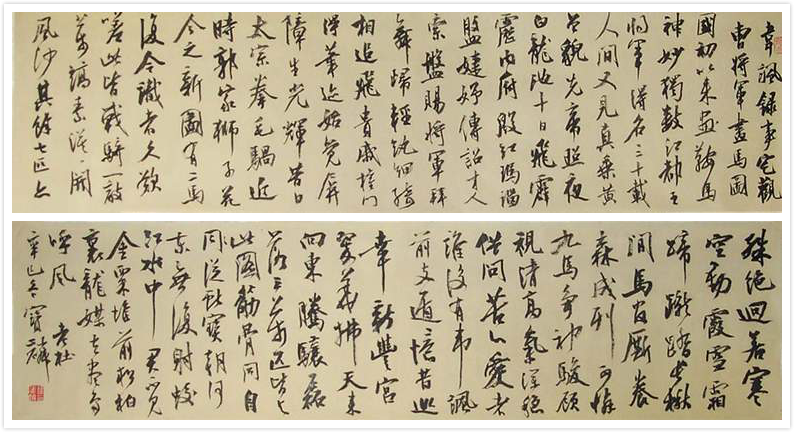 韋諷録事宅觀
曹將軍畫馬圖
國初以來畫鞍馬
神妙獨數江都王
將軍得名三十載
人間又見真乘黃
曾貌先帝照夜
白龍池十日飛霹
靂內府殷紅瑪瑙
盤婕妤傳詔才人
索盤賜將軍拜
舞歸輕紈細綺
相追飛貴戚權門
得筆迹始覺屏
障生光輝昔日
太宗拳毛騧近
時郭家獅子花
今之新圖有二馬
復令識者久歎
嗟此皆戰騎一敵
萬縞素漠々開
風沙其餘七匹亦
殊絕迥若寒
空動霞雪霜
蹄蹴踏長楸
間馬官厮養
森成列可憐
九馬爭神駿顧
視清高氣深穩
借問苦心愛者
誰後有韋諷
前支遁憶昔巡
幸新豐宮
翠華拂天來
向東騰驤磊
落三萬匹皆與
此圖筋骨同自
從獻寶朝河
宗無復射蛟
江水中君不見
金粟堆前松柏
裏龍媒去盡鳥
呼風 老杜
辛巳冬寶麟